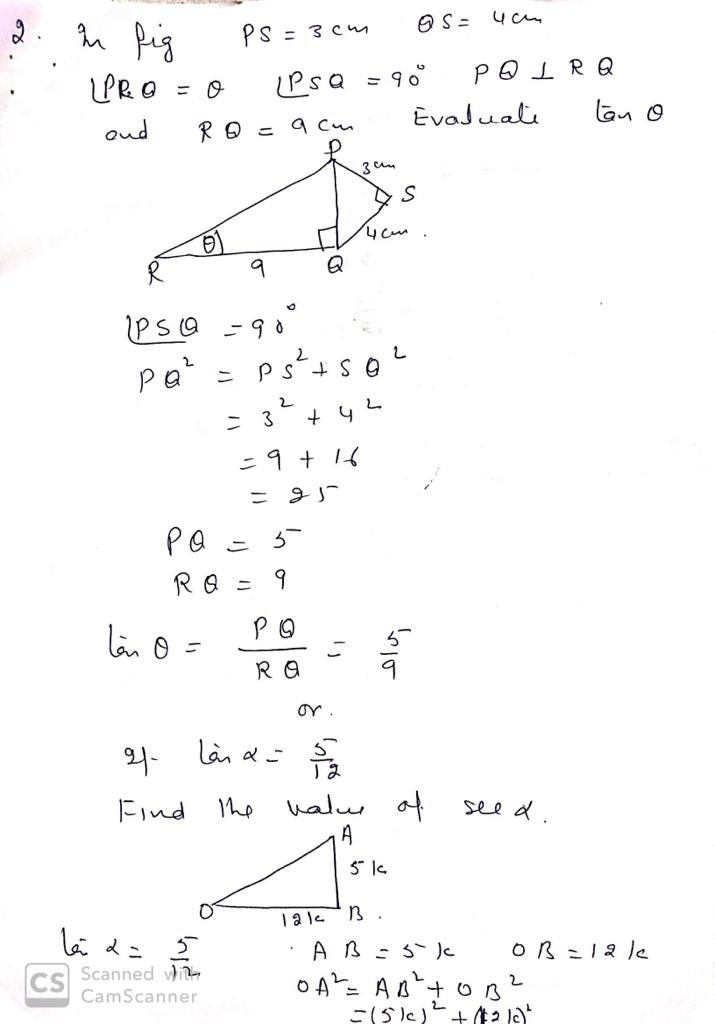 2. In fig PS = 3 cm QS = 4 cm
∠PRQ = θ ∠PSQ = 90° PQ ⊥ RQ
and RQ = 9 cm Evaluate tan θ
P
3 cm
S
θ
4 cm.
R 9 Q
∠PSQ = 90°
PQ² = PS² + SQ²
= 3² + 4²
= 9 + 16
= 25
PQ = 5
RQ = 9
tan θ = PQ/RQ = 5/9
or.
If tan α = 5/12
Find the value of sec α.
A
5k
O 12k B.
tan α = 5/12 AB = 5k OB = 12k
OA² = AB² + OB²
= (5k)² + (12k)²
CS Scanned with
CamScanner